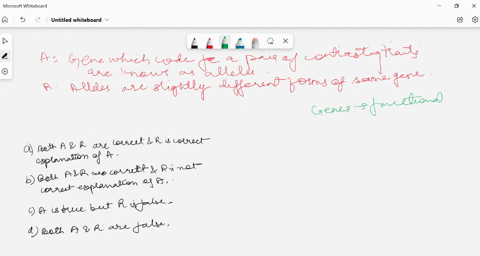 Microsoft Whiteboard
Untitled whiteboard
A: Gene which code for a pair of contrasting traits
are known as alleles.
R: Alleles are slightly different forms of same gene.
Genes → functional
a) Both A & R are correct & R is correct
explanation of A.
b) Both A & R are correct & R is not
correct explanation of A.
c) A is true but R is false.
d) Both A & R are false.